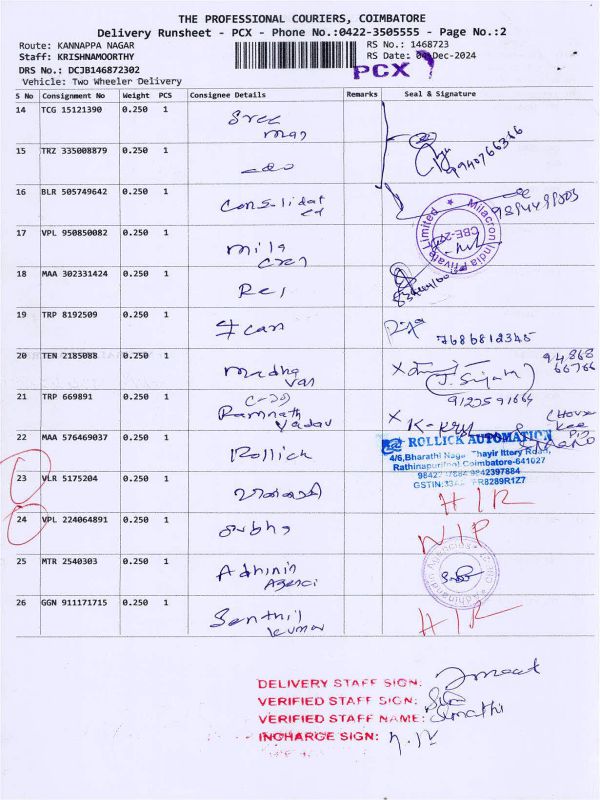 THE PROFESSIONAL COURIERS, COIMBATORE
Delivery Runsheet - PCX - Phone No.:0422-3505555 - Page No.:2
Route: KANNAPPA NAGAR RS No.: 1468723
Staff: KRISHNAMOORTHY RS Date: 04-Dec-2024
DRS No.: DCJB146872302 PCX
Vehicle: Two Wheeler Delivery
S No Consignment No Weight PCS Consignee Details Remarks Seal & Signature
14 TCG 15121390 0.250 1 Sree
9940766366
15 TRZ 335008879 0.250 1
16 BLR 505749642 0.250 1 Consolidat
ed
Milacron India Private Limited
17 VPL 950850082 0.250 1 mila
cron
18 MAA 302331424 0.250 1 Rej
19 TRP 8192509 0.250 1 7686812345
20 TEN 2185088 0.250 1 madha
van
21 TRP 669891 0.250 1 Ramnath
Yadav
22 MAA 576469037 0.250 1 Rollick
ROLLICK AUTOMATION
4/6,Bharathi Naga Thayir Ittery Road,
Coimbatore-641027
9842397884
23 VLR 5175204 0.250 1 HIR
24 VPL 224064891 0.250 1 Subha NIP
25 MTR 2540303 0.250 1 Adhinin
Agenci
26 GGN 911171715 0.250 1 Senthil
kumar HIR
DELIVERY STAFF SIGN:
VERIFIED STAFF SIGN:
VERIFIED STAFF NAME: Sumathi
INCHARGE SIGN: